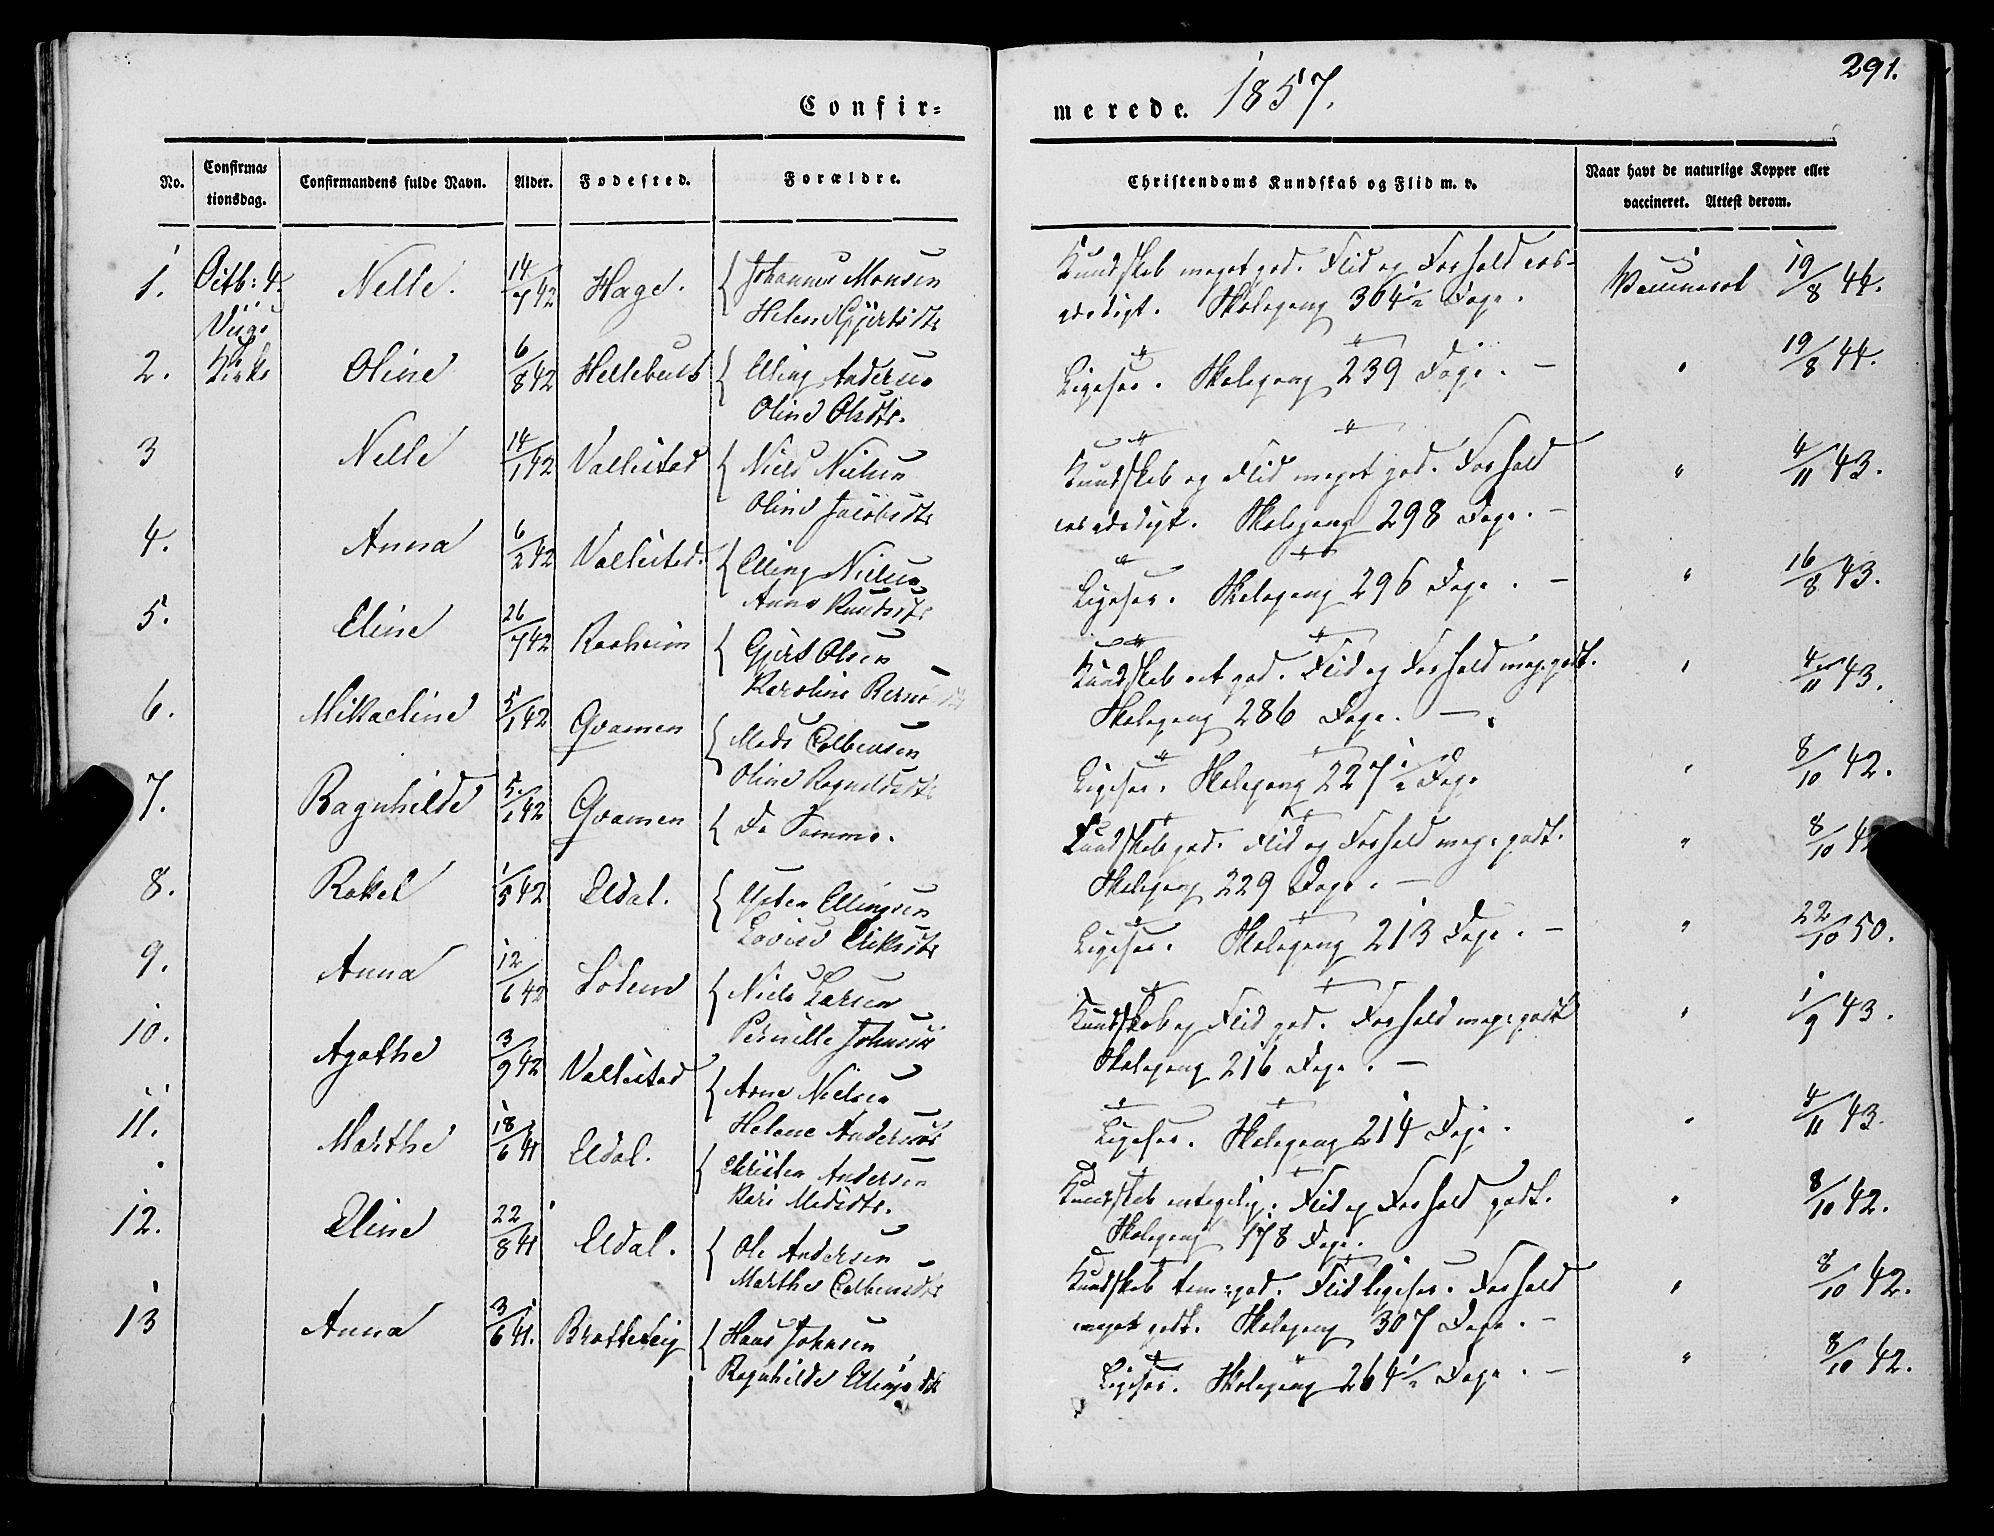 291.
Confir= merede. 1857.
No. Confirma= tionsdag. Confirmandens fulde Navn. Alder. Fødested. Forældre. Christendoms Kundskab og Flid m. v. Naar havt de naturlige Kopper eller vaccineret. Attest derom.
1. Octb: 4 Nelle. 14/7 42 Hage. Johannes Monsen
Kundskab meget god. Flid og Forhold ros-
Vaccineret 19/8 44.
Helene Gjertsdtr
værdigt. Skolegang 304½ Dage.
Kirke
2. Oline 6/8 42 Hellebust Elling Andersen
Oline Olsdtr.
Ligesaa. Skolegang 239 Dage. — " 19/8 44.
3 Nelle 14/1 42 Vallestad Niels Nielsen
Oline Jacobsdtr
Kundskab og Flid meget god. Forhold
rosværdigt. Skolegang 298 Dage. — " 4/11 43.
4. Anna 6/2 42 Vallestad. Elling Nielsen
Anna Knudsdtr
Ligesaa. Skolegang 296 Dage. — " 16/8 43.
5. Eline 26/7 42 Raaheim Gjert Olsen
Karoline
Kundskab god. Flid og Forhold meg: godt.
Skolegang 286 Dage. — " 4/11 43.
6. Mikaeline 5/1 42 Qvamen Mads Colbensen
Oline Ragnaldsdtr
Ligesaa. Skolegang 227½ Dage " 8/10 42.
7. Ragnhilde 5/1 42 Qvamen De Samme.
Kundskab god. Flid og Forhold meg: godt.
Skolegang 229 Dage. — " 8/10 42
8. Rakel 1/5 42 Eldal. Ellingsen
Lovise Eriksdtr
Ligesaa. Skolegang 213 Dage. — " 22/10 50.
9. Anna 12/6 42 Solem Niels Larsen
Pernille Johnsdtr
Kundskab og Flid god. Forhold meg: godt
Skolegang 216 Dage. — " 1/9 43.
10. Agathe 3/9 42 Vallestad Arne Nielsen
Helene Andersdtr
Ligesaa. Skolegang 214 Dage. " 4/11 43.
11. Marthe 18/6 41 Eldal. Christen Andersen
Kari Madsdtr.
Kundskab. Flid og Forhold godt.
Skolegang 178 Dage. " 8/10 42.
12. Eline 22/8 41 Eldal. Ole Andersen
Marthe Colbensdtr
Kundskab tem: god. Flid ligesaa. Forhold
meget godt. Skolegang 307 Dage. — " 8/10 42.
13 Anna 3/6 41. Bratteteig Hans Johnsen
Ragnhilde Ellingsdtr
Ligesaa. Skolegang 264½ Dage. — " 8/10 42.